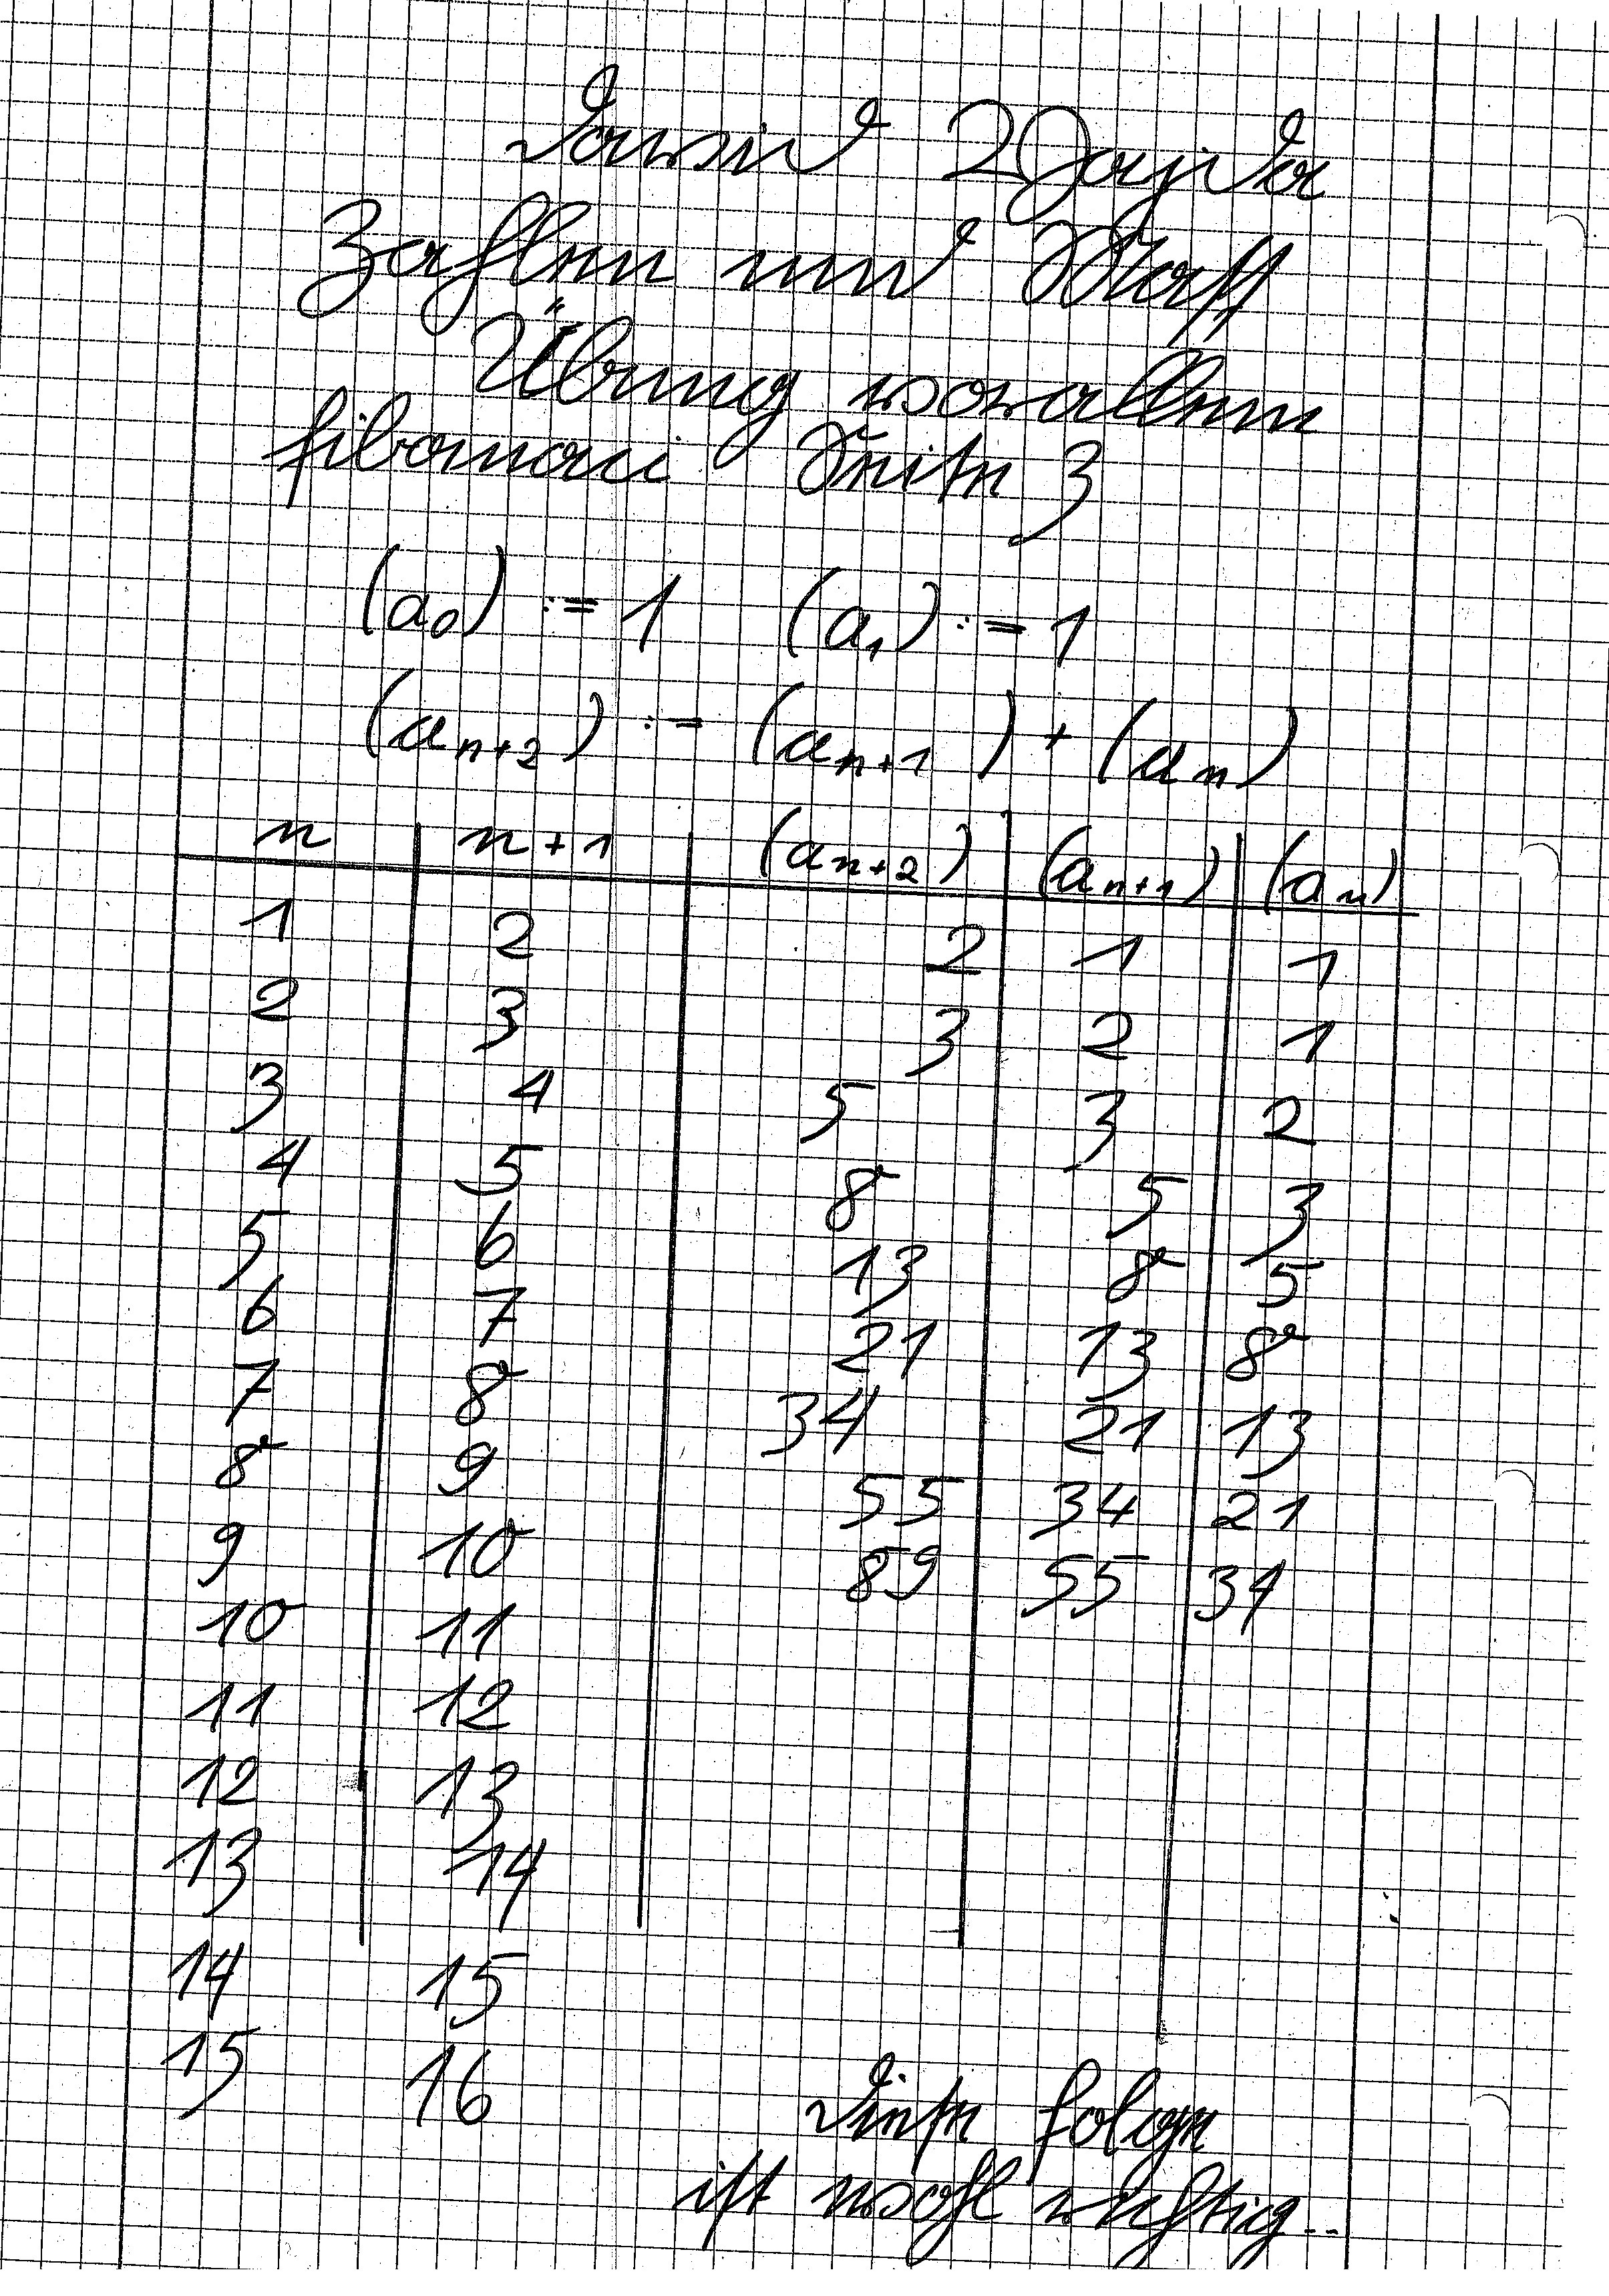 David Vajda
Zahlen und
Übung vorallem
fibonaci Seite 3
(a₀) := 1 (a₁) := 1
(aₙ₊₂) := (aₙ₊₁) + (aₙ)
n n+1 (aₙ₊₂) (aₙ₊₁) (aₙ)
1 2 2 1 1
2 3 3 2 1
3 4 5 3 2
4 5 8 5 3
5 6 13 8 5
6 7 21 13 8
7 8 34 21 13
8 9 55 34 21
9 10 89 55 34
10 11
11 12
12 13
13 14
14 15
15 16
Diese folge
ist wohl wichtig...